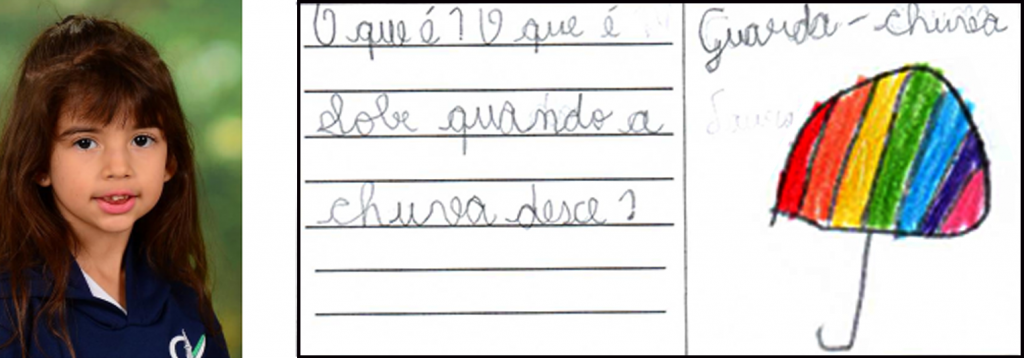 O que é? O que é
sobe quando a
chuva desce?
Guarda-chuva